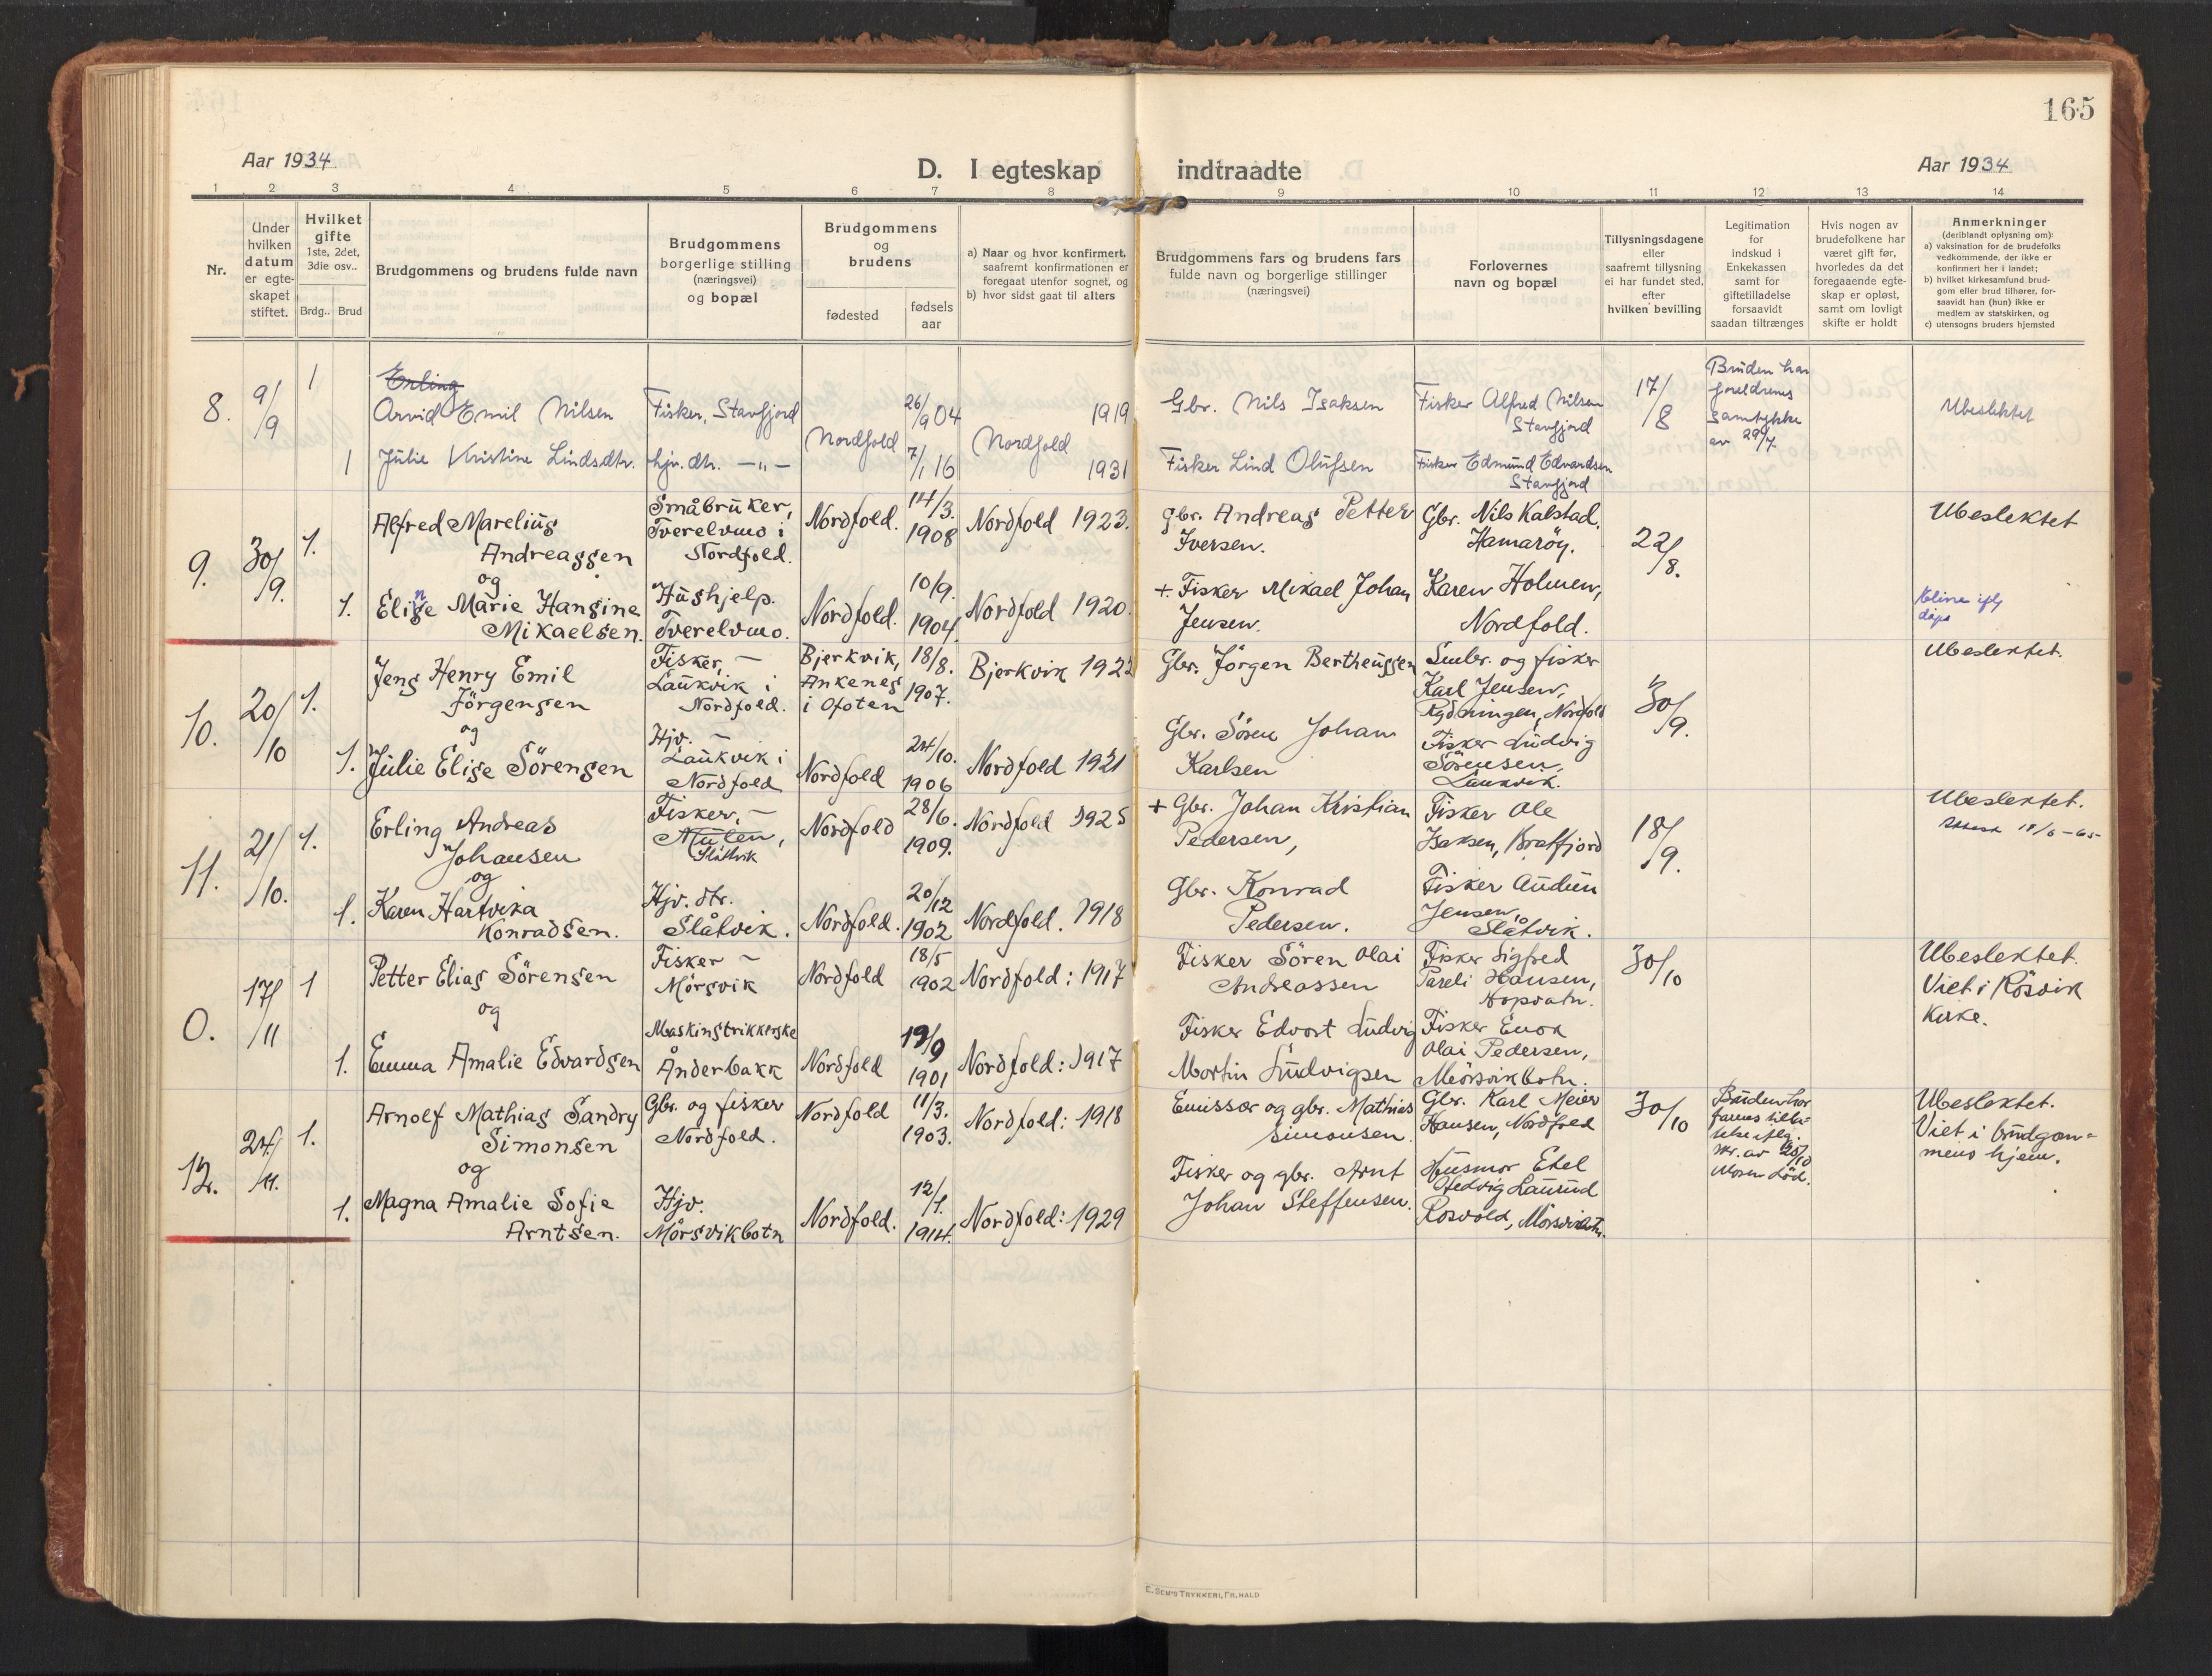 165
Aar 1934.
D. I egteskap indtraadte
Aar 1934
1 2 3 4 5 6 7 8 9 10 11 12 13 14
Nr.
Under
hvilken
datum
er egte-
skapet
stiftet.
Hvilket
gifte
1ste, 2det,
3die osv..
Brdg.. Brud
Brudgommens og brudens fulde navn
Brudgommens
borgerlige stilling
(næringsvei)
og bopæl
Brudgommens
og
brudens
fødested
fødsels
aar
a) Naar og hvor konfirmert,
saafremt konfirmationen er
foregaat utenfor sognet, og
b) hvor sidst gaat til alters
Brudgommens fars og brudens fars
fulde navn og borgerlige stillinger
(næringsvei)
Forlovernes
navn og bopæl
Tillysningsdagene
eller
saafremt tillysning
ei har fundet sted,
efter
hvilken bevilling
Legitimation
for
indskud i
Enkekassen
samt for
giftetilladelse
forsaavidt
saadan tiltrænges
Hvis nogen av
brudefolkene har
været gift før,
hvorledes da det
foregaaende egte-
skap er opløst,
samt om lovligt
skifte er holdt
Anmerkninger
(deriblandt oplysning om):
a) vaksination for de brudefolks
vedkommende, der ikke er
konfirmert her i landet;
b) hvilket kirkesamfund brud-
gom eller brud tilhører, for-
saavidt han (hun) ikke er
medlem av statskirken, og
c) utensogns bruders hjemsted
8.
9/9
1
Erling
Arvid Emil Nilsen
Fisker, Stavfjord
Nordfold
26/9 04
Nordfold
1919
Gbr. Nils Isaksen
Fisker Alfred Nilsen
Stavfjord
17/8
Bruden har
foreldrenes
samtykke
av 29/7.
Ubeslektet
1
Julie Kristine Lindsdtr.
hjv. dtr. -"-
7/1 16
1931
Fisker Lind Olufsen
Fisker Edmund Edvardsen
Stavfjord
9.
30/9.
1.
Alfred Marelius
Andreassen
og
Småbruker,
Tverelvmo i
Nordfold.
Nordfold.
14/3.
1908
Nordfold 1923.
Gbr. Andreas Petter
Iversen.
Gbr. Nils Kalstad,
Hamarøy.
22/8.
Ubeslektet
1.
n
Elise Marie Hansine
Mikaelsen.
Hushjelp.
Tverelvmo.
Nordfold.
10/9.
1904.
Nordfold 1920.
+ Fisker Mikael Johan
Jensen.
Karen Holmen,
Nordfold.
Eline ifl
dåps
10.
20/10
1.
Jens Henry Emil
Jörgensen
og
Fisker, -
Laukvik i
Nordfold.
Bjerkvik,
Ankenes
i Ofoten
18/8.
1907.
Bjerkvik 1922
Gbr. Jörgen Bertheussen
Smbr. og fisker
Karl Jensen,
Rydningen, Nordfold
30/9.
Ubeslektet.
1.
Julie Elise Sörensen
Hjv. -
Laukvik i
Nordfold
Nordfold
24/10.
1906
Nordfold 1921
Gbr. Sören Johan
Karlsen
Fisker Ludvig
Sörensen,
Laukvik.
11.
21/10.
1.
Erling Andreas
Johansen
og
Fisker, -
Mulen,
Slåttvik
Nordfold
28/6.
1909.
Nordfold 1925
+ Gbr. Johan Kristian
Pedersen,
Fisker Ole
Isaksen, Bratfjord
18/9.
Ubeslektet.
Attest 18/6-65
1.
Karen Hartvika
Konradsen.
Hjv. dtr.
Slåtvik.
Nordfold.
20/12
1902
Nordfold. 1918
Gbr. Konrad
Pedersen.
Fisker Audun
Jensen,
Slåtvik.
O.
17/11
1
Petter Elias Sörensen
og
Fisker -
Mörsvik
Nordfold
18/5
1902
Nordfold: 1917
Fisker Sören Olai
Andreassen
Fisker Sigfred
Pareli Hansen,
Hopvatn.
30/10
Ubeslektet.
Viet i Rösvik
Kirke.
1.
Emma Amalie Edvardsen
Maskinstrikkerske
Ånderbakk
Nordfold
19/9
1901
Nordfold: 1917
Fisker Edvart Ludvig
Martin Ludvigsen
Fisker Enok
Olai Pedersen,
Mörsvikbotn.
12.
24/11.
1.
Arnolf Mathias Sandry
Simonsen
og
Gbr. og fisker
Nordfold.
Nordfold
11/3.
1903.
Nordfold: 1918
Emissær og gbr. Mathias
Simonsen.
Gbr. Karl Meier
Hansen, Nordfold
30/10
Bruden har
farens tilla-
telse iflg.
skr. av 20/10
Moren död.
Ubeslektet.
Viet i brudgom-
mens hjem.
1.
Magna Amalie Sofie
Arntsen.
Hjv.
Mörsvikbotn
Nordfold.
12/1.
1914.
Nordfold: 1929
Fisker og gbr. Arnt
Johan Steffensen.
Husmor Etel
Hedvig Laurud
Rosvold, Mörsvikbotn.
E. SEM'S TRYKKERI, FR.HALD